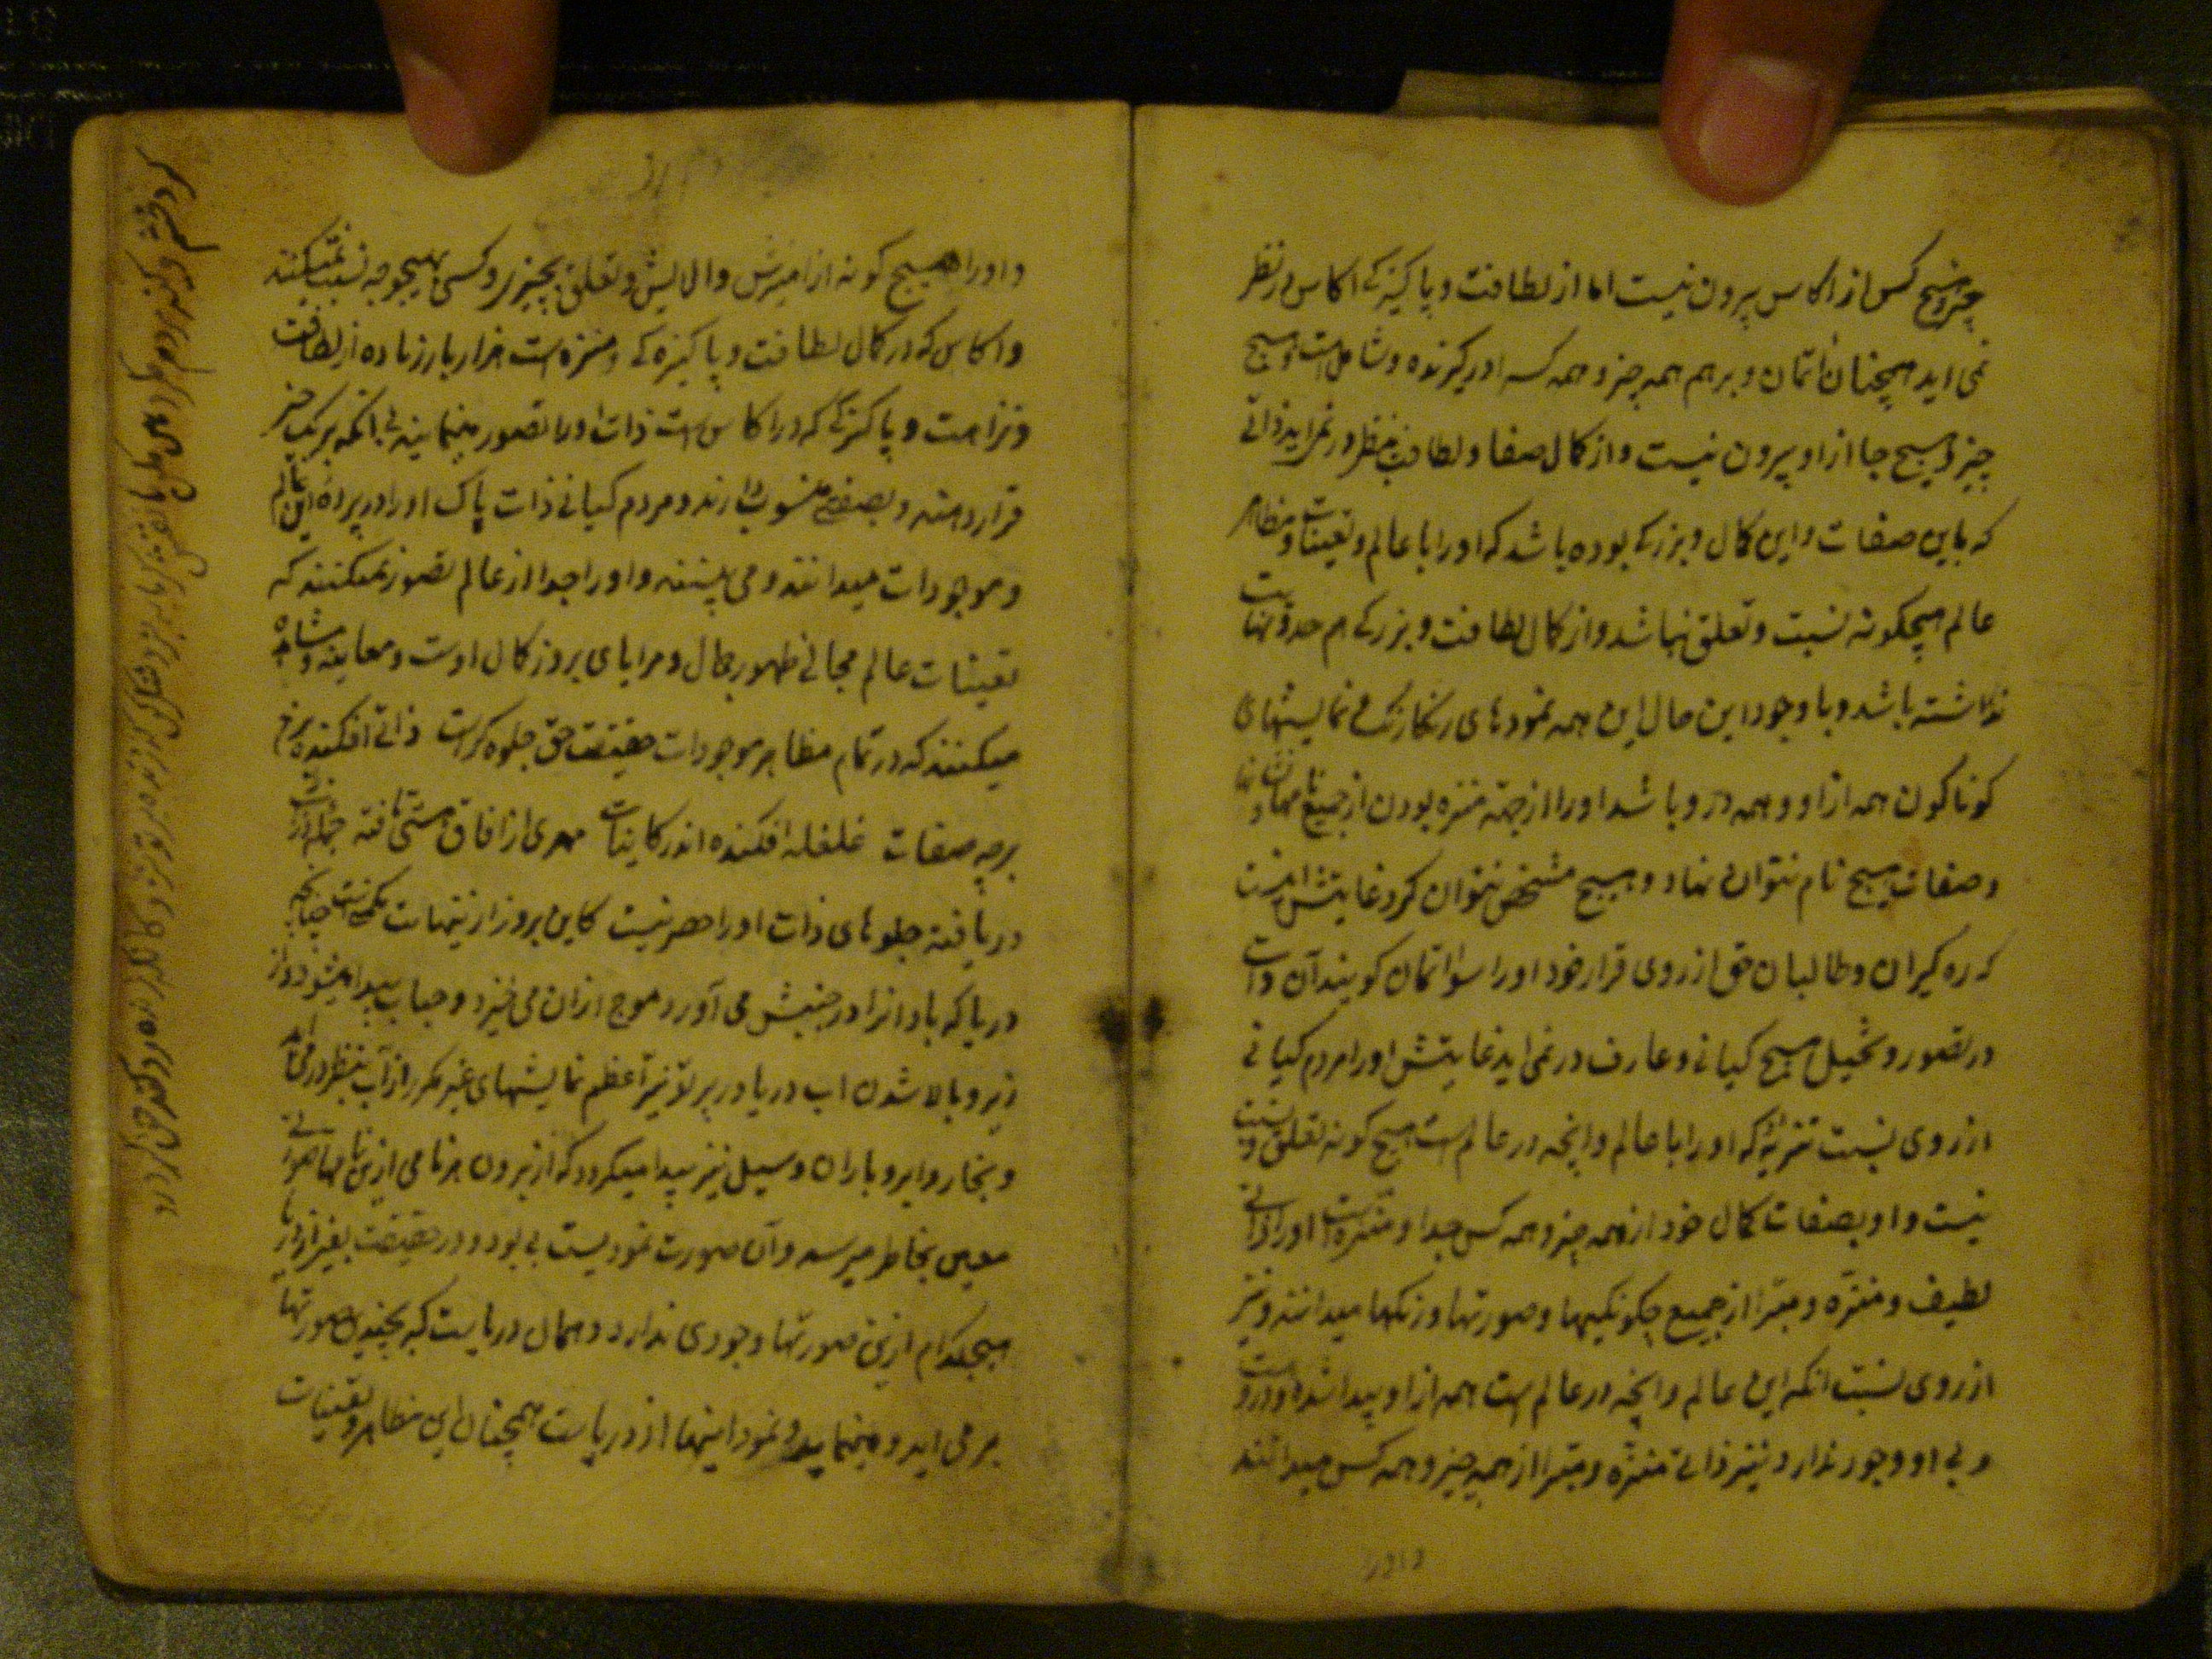 چیز و هیچ کس از اکاس بیرون نیست اما از لطافت و پاکیزکی اکاس در نظر
نمی اید همچنان اتمان و بر هم همه چیز و همه کسه را در کیرنده و شامل است و هیچ
چیز و هیچ جا از او بیرون نیست و از کمال صفا و لطافت بنظر در نمی اید ذاتی
که باین صفات و این کمال و بزرکی بوده باشد که او را با عالم و تعینات و مظاهر
عالم هیچکونه نسبت و تعلق نباشد و از کمال لطافت و بزرکی هم حد و نهایت
نداشته باشد و با وجود این حال این همه نمودهای رنکارنک و نمایشهای
کوناکون همه از او و همه در و باشد او را از جهة منزه بودن از جمیع نامها و نشانها
و صفات هیچ نام نتوان نهاد و هیچ مشخص نتوان کرد غایتش اینست
که ره کیران و طالبان حق از روی قرار خود او را سواتمان کویند آن ذات
در تصور و تخیل هیچ کیانی و عارف در نمی اید غایتش او را مردم کیانی
از روی نسبت تنزیه که او را با عالم و انچه در عالم است هیچ کونه تعلق و نسبت
نیست و او بصفات کمال خود از همه چیز و همه کس جدا و منزه است او را ذاتی
لطیف و منزه و مبرا از جمیع چکونکیها و صورتها و رنکها میدانند و نیز
از روی نسبت انکه این عالم و انچه در عالم است همه از او پیدا شده و در و است
و بی او وجود ندارد نیز ذاتی منزه و مبرا از همه چیز و همه کس میدانند
و او را
و او را هیچ کونه از امیزش و الایش و تعلق بچیزی و کسی بهیچوجه نسبت نمیکنند
و اکاس که در کمال لطافت و پاکیزه کی و منزه است هزار بار زیاده از لطافت
و نزاهت و پاکیزکی که در اکاس است ذات او را تصور مینمایند بی انکه بر یک چیز
قرار دهند و بصفتی منسوب دارند و مردم کیانی ذات پاک او را در پرده این عالم
و موجودات میدانند و می بینند و او را جدا از عالم تصور نمیکنند که
تعینات عالم مجالی ظهور جمال و مرایای بروز کمال اوست و معاینه و مشاهده
میکنند که در تمام مظاهر موجودات حقیقت حق جلوه کر است ذاتی افکنده برخ
برچه صفات غلغله افکنده اندر کاینات مهری از افاق هستی تافته جمله ذرات
دریافته جلوهای ذات او را حصر نیست کاین بروز از ینهایت چنانچه
دریا که باد انرا در جنبش می آورد موج ازان می خیزد و حباب پیدا میشود و از
زیر و بالا شدن اب دریا در پرتو نیر اعظم نمایشهای غیر مکرر از آب بنظر در می اید
و بخار و ابر و باران و سیل نیز پیدا میکردد که از برون هر نامی ازین نامها صورتی
معین بخاطر میرسد و آن صورت نمودیست بی بود و در حقیقت بغیر از دریا
هیچکدام ازین صورتها وجودی ندارد و همان دریاست که بچندین صورتها
بر می اید و مینماید و نمود اینها از دریاست همچنان این مظاهر و تعینات